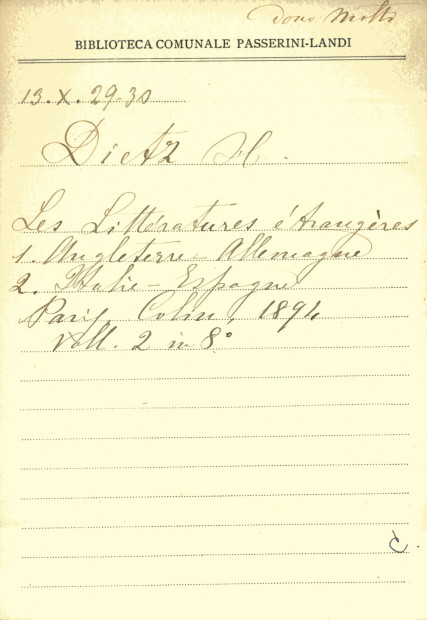 dono Molti
BIBLIOTECA COMUNALE PASSERINI-LANDI
13. X. 29-30
Dietz H.
Les Littératures étrangères
1. Angleterre - Allemagne
2. Italie - Espagne
Paris, Colin, 1894
Voll. 2 in 8°
C.